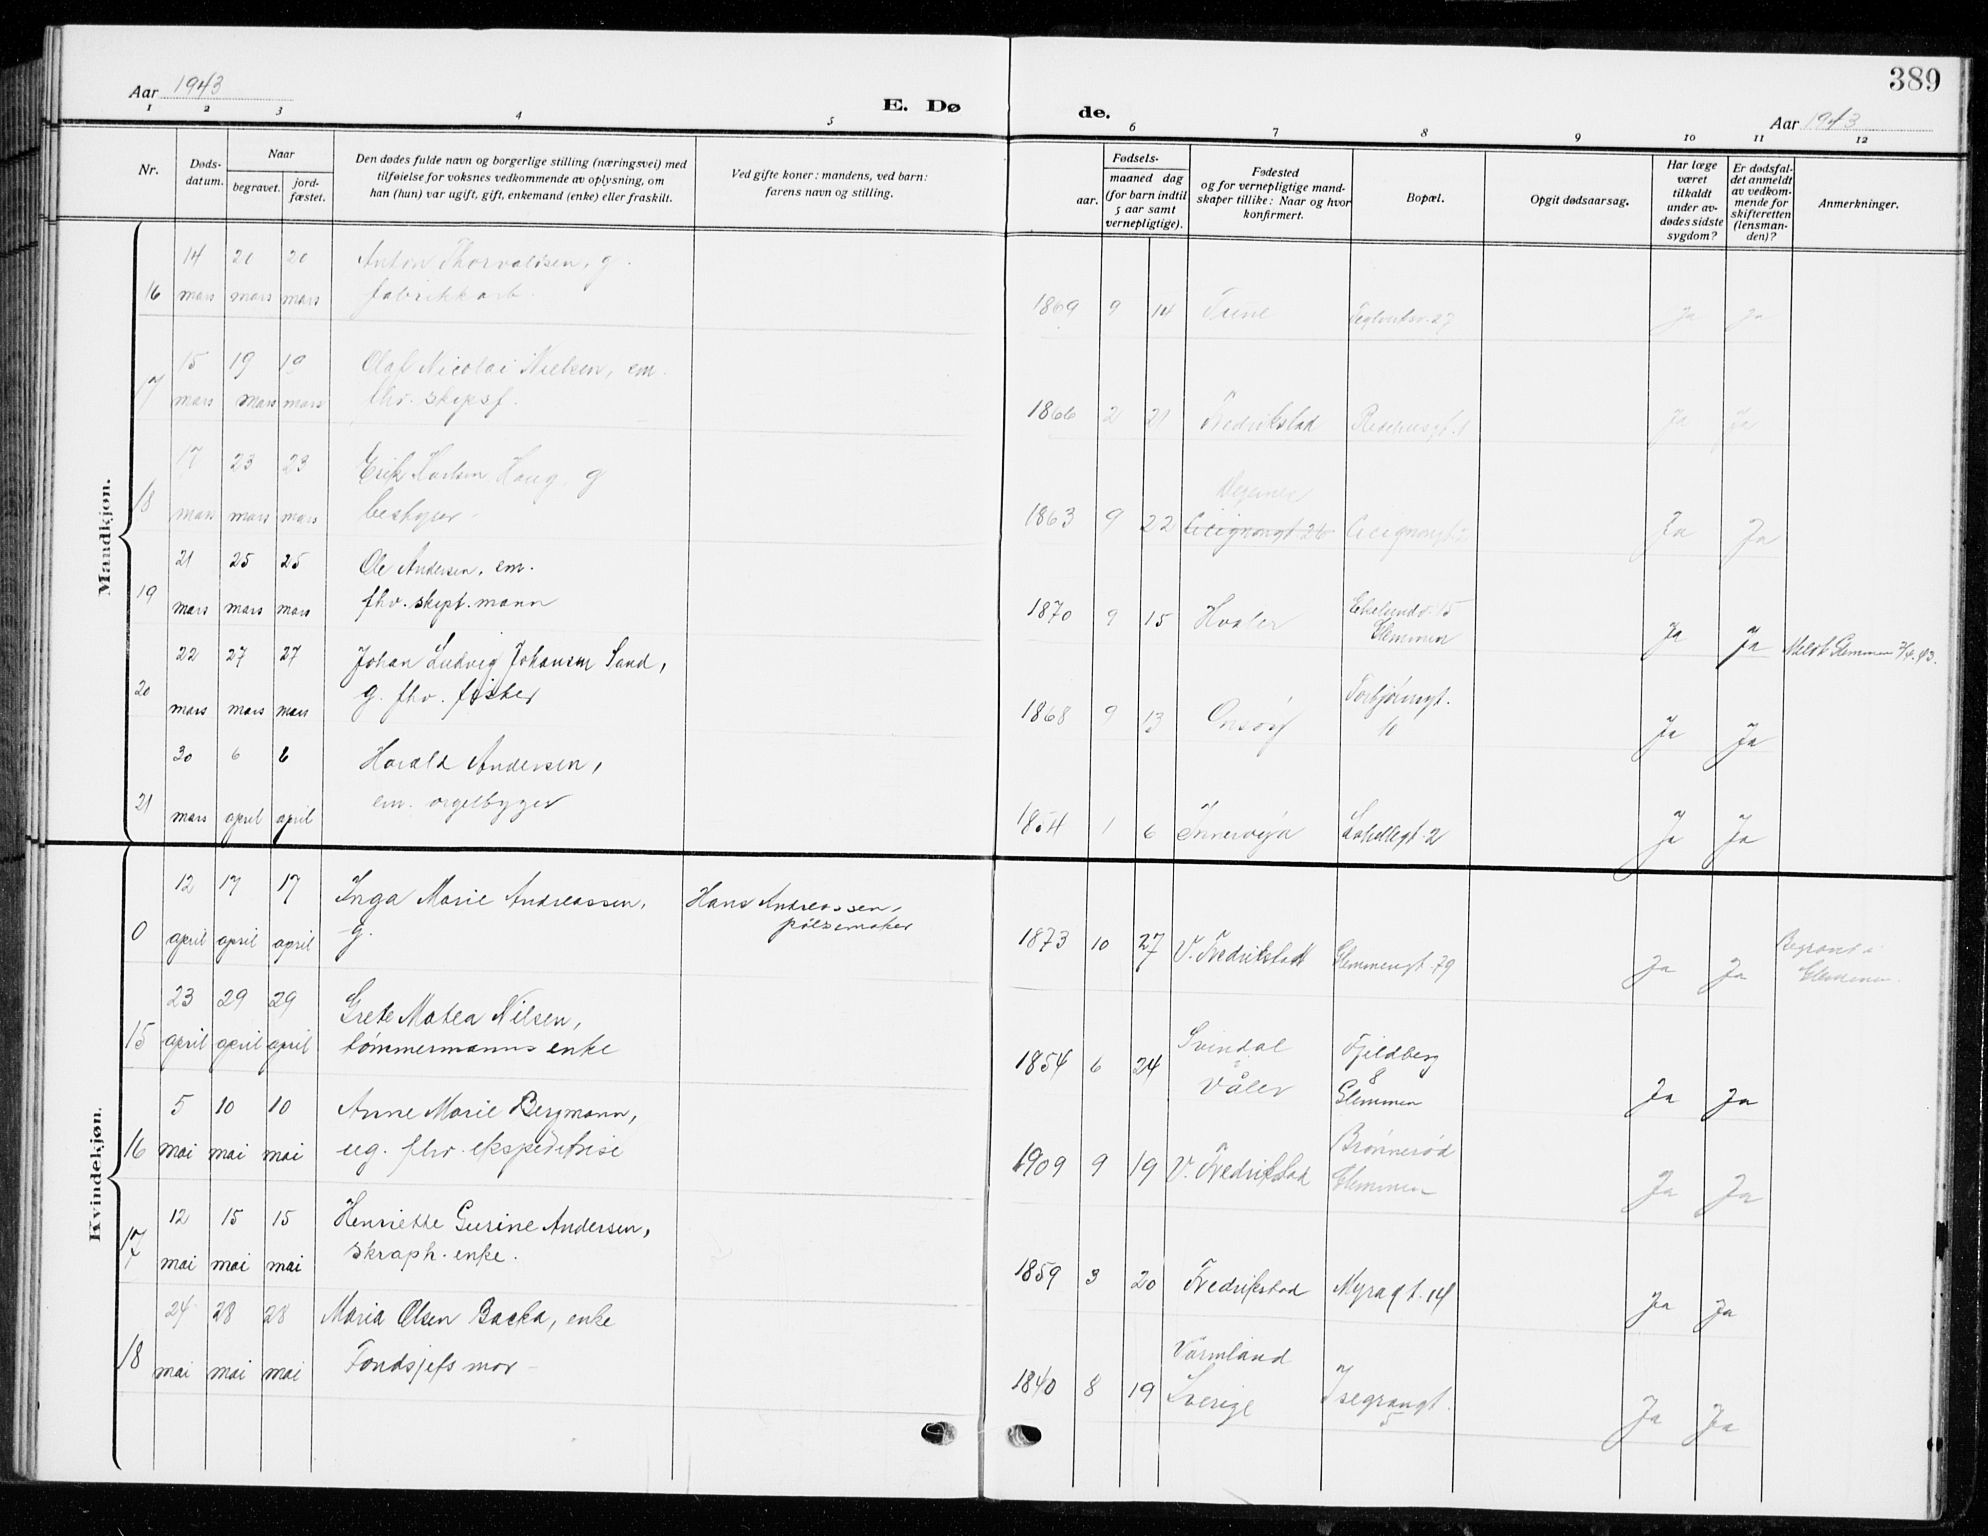 389
Aar 1943
E. Dø de.
Aar 1943
1 2 3 4 5 6 7 8 9 10 11 12
Nr.
Døds-
datum.
Naar
begravet.
jord-
fæstet.
Den dødes fulde navn og borgerlige stilling (næringsvei) med
tilføielse for voksnes vedkommende av oplysning, om
han (hun) var ugift, gift, enkemand (enke) eller fraskilt.
Ved gifte koner: mandens, ved barn:
farens navn og stilling.
Fødsels-
aar.
maaned dag
(for barn indtil
5 aar samt
vernepligtige).
Fødested
og for vernepligtige mand-
skaper tillike: Naar og hvor
konfirmert.
Bopæl.
Opgit dødsaarsag.
Har læge
været
tilkaldt
under av-
dødes sidste
sygdom?
Er dødsfal-
det anmeldt
av vedkom-
mende for
skifteretten
(lensman-
den)?
Anmerkninger.
Mandkjøn.
14 20 20 Anton Thorvaldsen, g.
16 mars mars mars fabrikkarb.
1869 9 14 Tune 27 Ja Ja
15 19 19 Olaf Nicolai Nielsen, em.
17 mars mars mars fhv. skipsf.
1866 2 21 Fredrikstad Ja Ja
17 23 23 Erik Karlsen Haug, g
18 mars mars mars bestyrer
1863 9 22 Cicignongt 26 Cicignongt Ja Ja
21 25 25 Ole Andersen, em.
19 mars mars mars fhv. skipt. mann
1870 9 15 Hvaler Ekelundv. 15
Glemmen Ja Ja Meldt Glemmen
22 27 27 Johan Ludvig Johansen Sand,
20 mars mars mars g. fhv. fisker
1868 9 13 Onsøy Torbjørnsgt.
10 Ja Ja
30 6 6 Harald Andersen,
21 mars april april em. orgelbygger
1854 1 6 2 Ja Ja
Kvindekjøn.
12 17 17 Inga Marie Andreassen, Hans Andreassen,
0 april april april g. pølsemaker
1873 10 27 V. Fredrikstad Glemmengt. 79 Ja Ja Begravet i
Glemmen.
23 29 29 Grete Matea Nilsen,
15 april april april tømmermanns enke
1854 6 24 Svindal
i
Våler Fjeldberg
8
Glemmen Ja Ja
5 10 10 Anne Marie Bergmann,
16 mai mai mai ug. fhv. ekspeditrise
1909 9 19 V. Fredrikstad Brønnerød
Glemmen Ja Ja
12 15 15 Henriette Gurine Andersen,
17 mai mai mai skraph. enke.
1859 3 20 Fredrikstad Myragt. 14 Ja Ja
24 28 28 Maria Olsen Backa, enke
18 mai mai mai Fondsjefs mor
1840 8 19 Värmland
Sverige Isegrangt.
5 Ja Ja